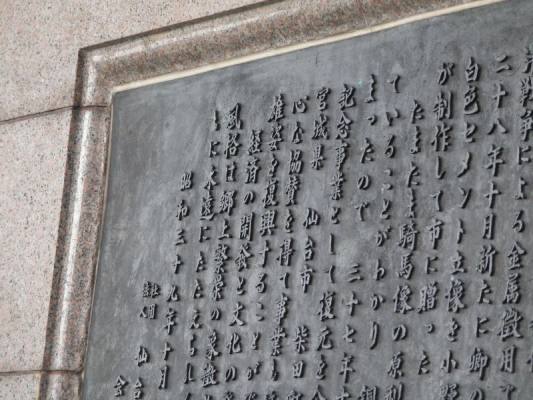 戦争による金属徴用で
二十八年十月新たに卿の
白色セメント立像を小野
が制作して市に贈った
たまたま騎馬像の原
ていることがわかり
まったので
記念事業として復元を
宮城県 仙台市 柴田
心な協賛を得て事業
雄姿を復興すること
経済の開発と文化の
風格は郷土繁栄の象徴
もに永遠にたたえら
昭和三十九年十月
社団法人 仙台
会